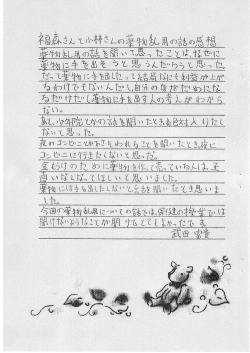 福森さんと小林さんの薬物乱用の話の感想
薬物乱用の話を聞いて思ったことは、なぜに
薬物に手を出そうと思うんだろうと思った。
だって薬物に手を出したって結局なにも利益が上が
るわけでもないんだし自分の身がだめにな
るだけだし薬物に手を出す人の考えがわから
ない。
あと、少年院とかの話を聞いたとき自分は入りた
ないと思った。
夜のコンビニとかで
コンビニに行きたくないと思った。
金もうけのために薬物を作って売っている人は、
ほしいと思いました。
薬物には手を出したくないと話を聞いたとき思いま
した。
今回の薬物乱用についての話では、保健の授業では
聞けないようなことが聞けてとてもよかったです
武田